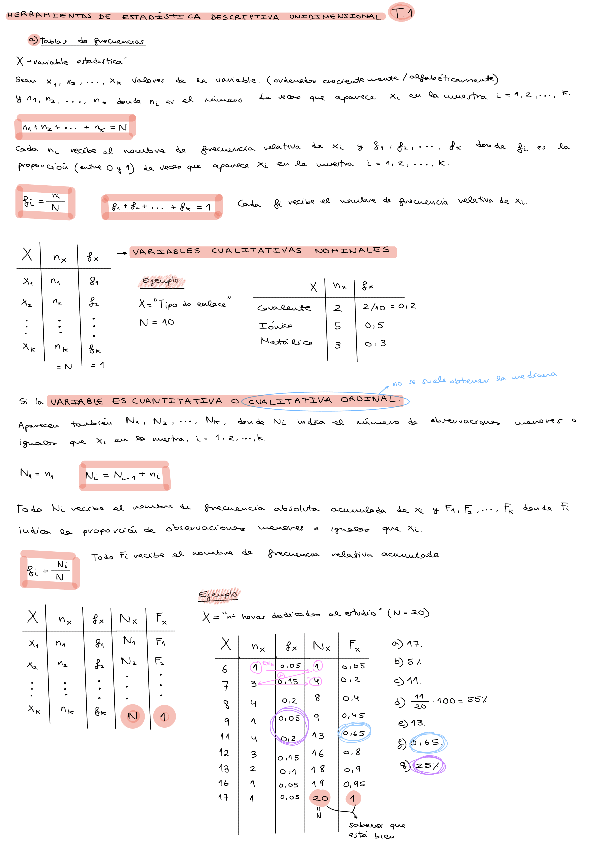 HERRAMIENTOS DE ESTADÍSTICA DESCRIPTIVA UNIDIMENSIONAL T1
a) Tablas de frecuencias
X → variable estadística
Sean x1, x2, ..., xk valores de la variable (ordenados crecientemente/alfabéticamente)
y n1, n2, ..., nk donde ni es el número de veces que aparece xi en la muestra i = 1, 2, ..., k.
n1 + n2 + ... + nk = N
Cada ni recibe el nombre de frecuencia relativa de xi y f1, f2, ..., fk donde fi es la
proporción (entre 0 y 1) de veces que aparece xi en la muestra i = 1, 2, ..., k.
fi = n/N
f1 + f2 + ... + fk = 1
Cada fi recibe el nombre de frecuencia relativa de xi.
→ VARIABLES CUALITATIVAS NOMINALES
X nx fx
x1 n1 f1
x2 n2 f2
: : :
xk nk fk
= N = 1
Ejemplo
X = "Tipo de enlace"
N = 10
X nx fx
Covalente 2 2/10 = 0,2
Iónico 5 0,5
Metálico 3 0,3
no se suele obtener la mediana
Si la VARIABLE ES CUANTITATIVA O CUALITATIVA ORDINAL.
Aparecen también N1, N2, ..., Nk, donde Ni indica el número de observaciones menores o
iguales que xi en la muestra, i = 1, 2, ..., k.
N1 = n1
Ni = Ni-1 + ni
Todo Ni recibe el nombre de frecuencia absoluta acumulada de xi y F1, F2, ..., Fk donde Fi
indica la proporción de observaciones menores o iguales que xi.
fi = Ni/N
Todo Fi recibe el nombre de frecuencia relativa acumulada
X nx fx Nx Fx
x1 n1 f1 N1 F1
x2 n2 f2 N2 F2
: : : : :
xk nk fk N 1
Ejemplo
X = "nº horas dedicadas al estudio" (N = 20)
X nx fx Nx Fx
6 1 0,05 1 0,05
7 3 0,15 4 0,2
8 4 0,2 8 0,4
9 1 0,05 9 0,45
11 4 0,2 13 0,65
12 3 0,15 16 0,8
13 2 0,1 18 0,9
16 1 0,05 19 0,95
17 1 0,05 20 1
N
sabemos que
está bien
a) 17.
b) 5%
c) 11.
d) 11/20 · 100 = 55%
e) 13.
f) 0,65
g) 25%